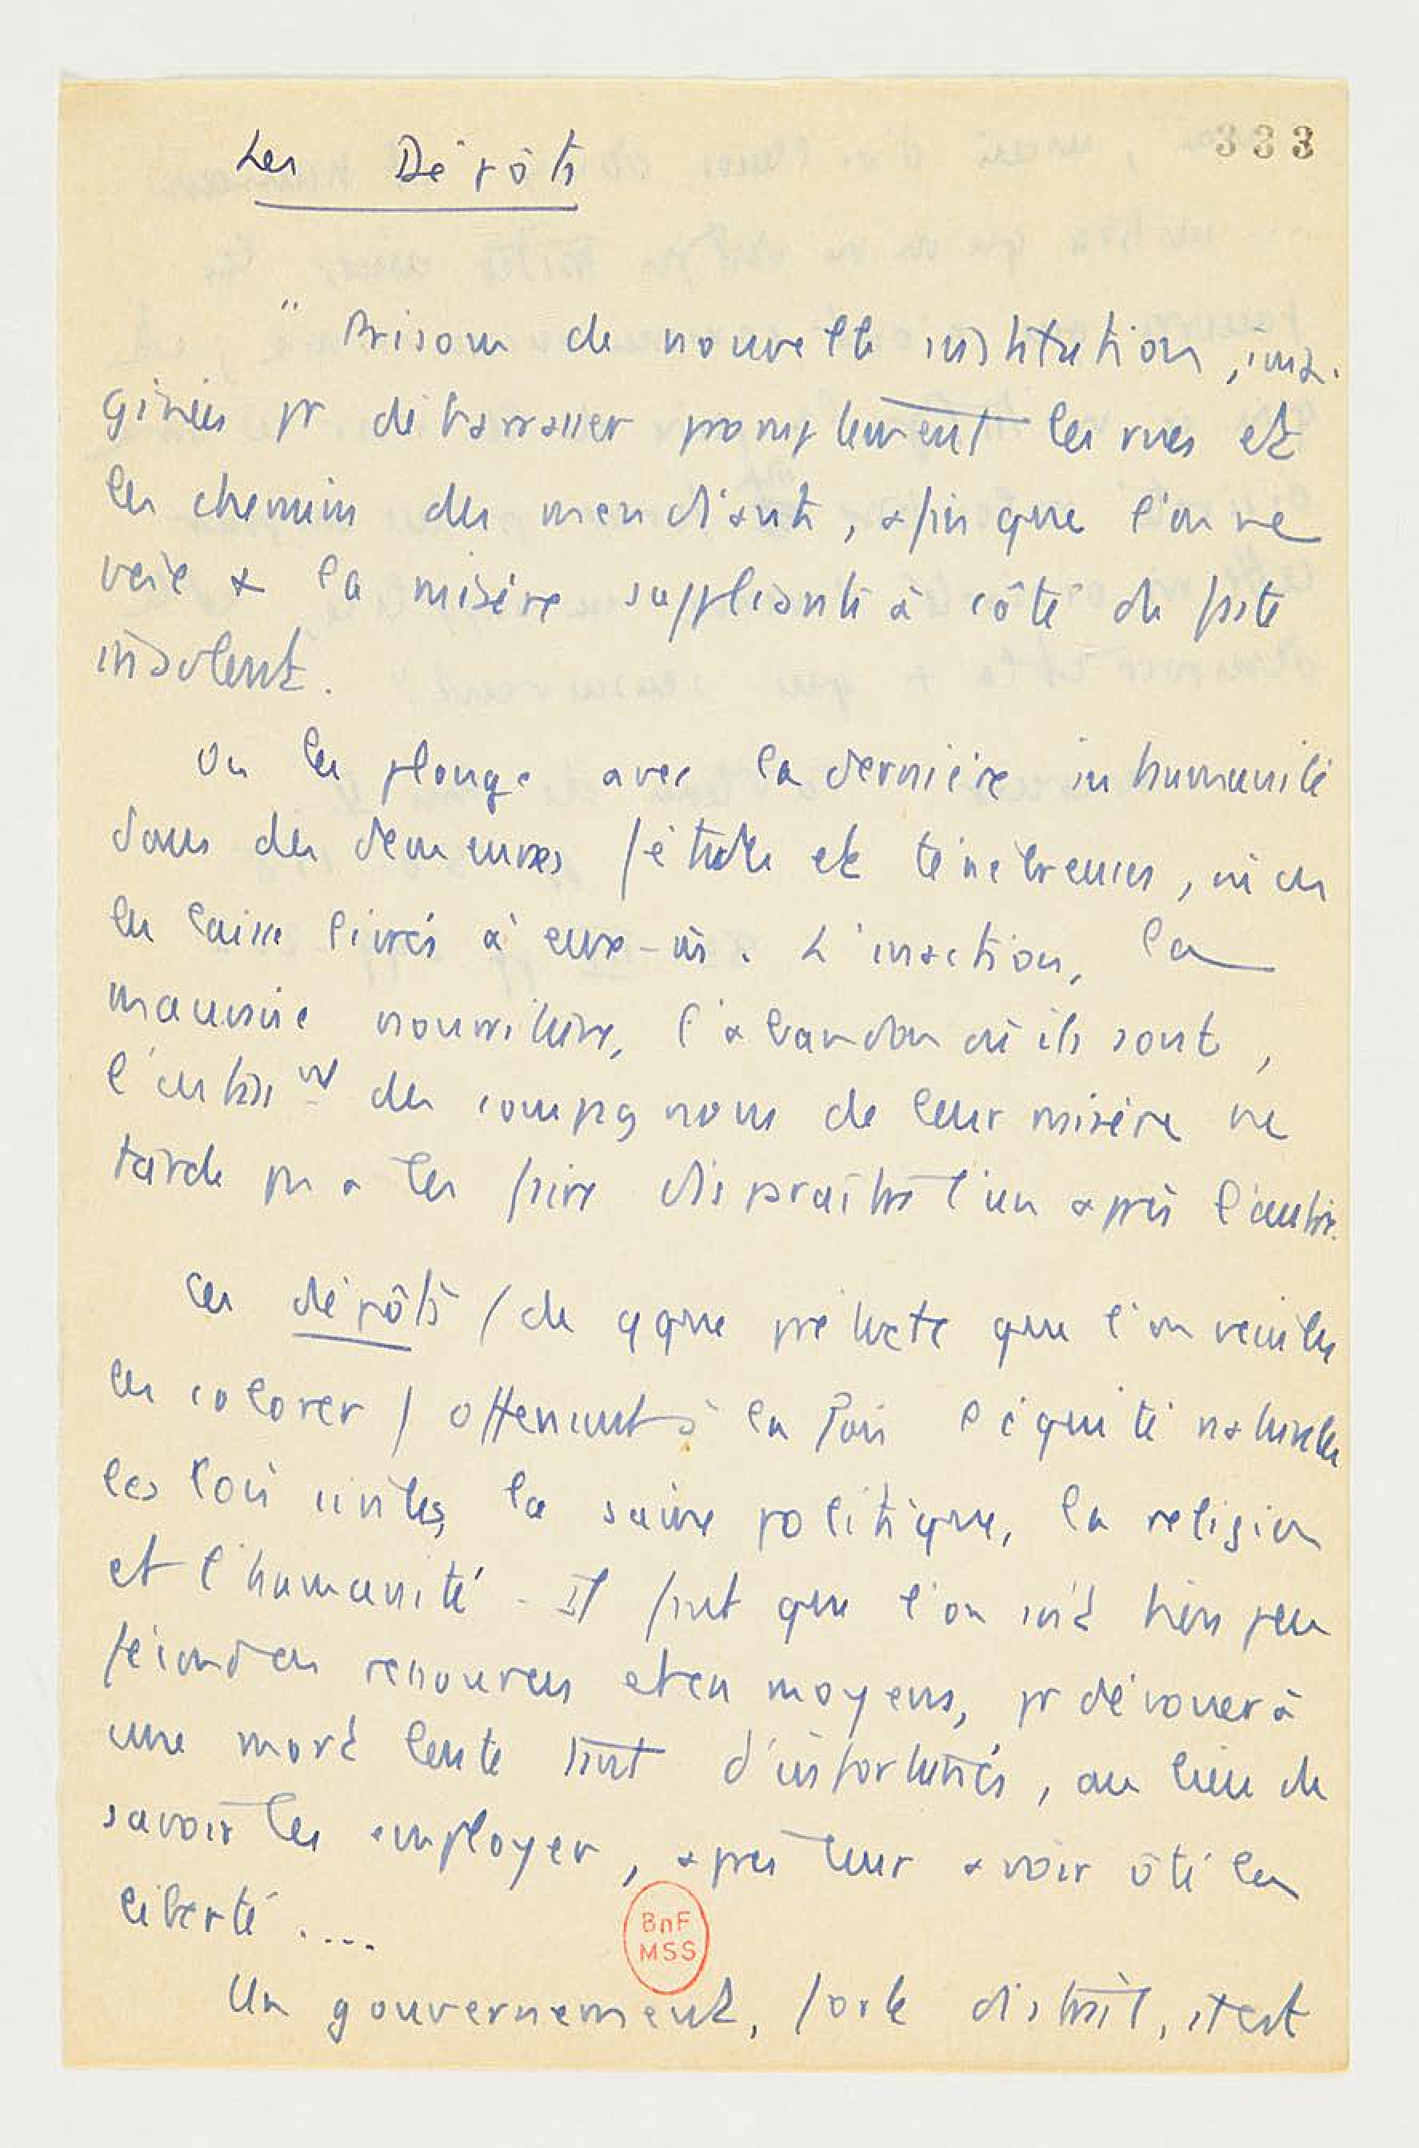 333
Les Dépôts
" Prisons de nouvelle institution, ima-
ginées pr débarrasser promptement les rues et
les chemins des mendiants, afin que l'on ne
voie + la misère suppliante à côté du faste
insolent.
On les plonge avec la dernière inhumanité
dans des demeures fétides et ténébreuses, où on
les laisse livrés à eux-ms. L'inaction, la
mauvaise nourriture, l'abandon où ils sont,
l'entasst des compagnons de leur misère ne
tarde pas à les faire disparaître l'un après l'autre.
Ces dépôts (de qque prétexte que l'on veuille
les colorer) attentent à la fois l'équité naturelle
les lois civiles, la saine politique, la religion
et l'humanité. Il faut que l'on soit bien peu
fécond en ressources et en moyens, pr dévouer à
une mort lente tant d'infortunés, au lieu de
savoir les employer, après leur avoir ôté la
liberté ....
BnF
MSS
Un gouvernement,